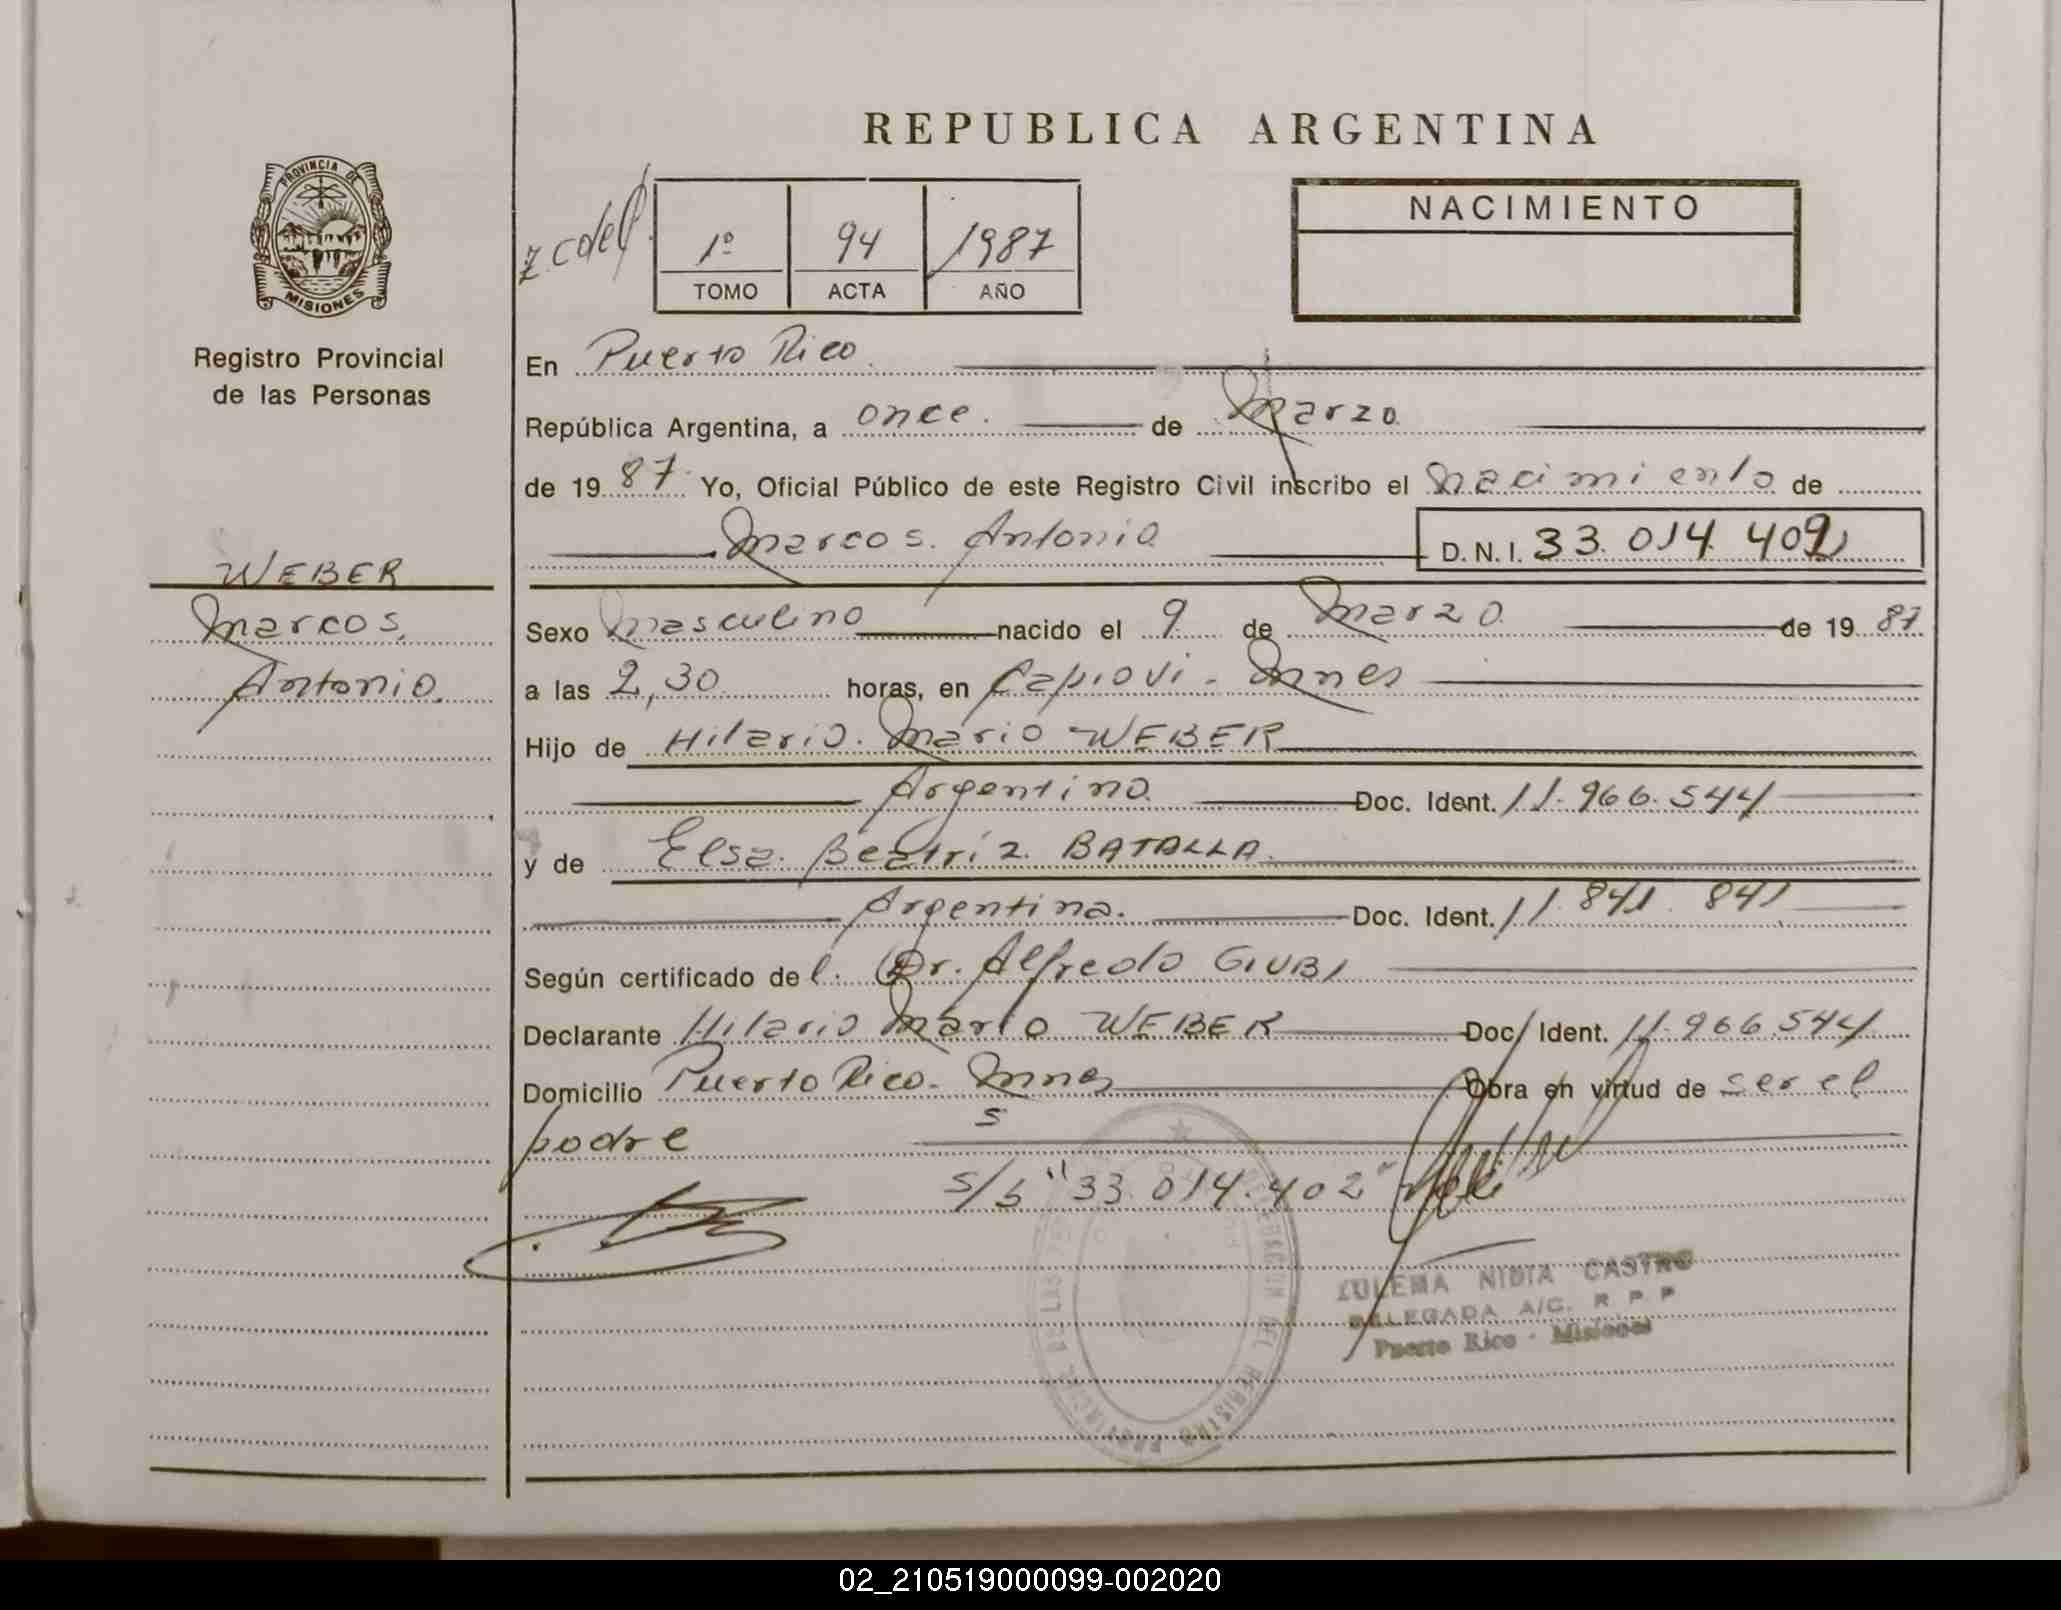 REPUBLICA ARGENTINA
PROVINCIA DE
MISIONES
Registro Provincial
de las Personas
1º 94 1987
TOMO ACTA AÑO
NACIMIENTO
En Puerto Rico.
República Argentina, a once. de Marzo
de 1987. Yo, Oficial Público de este Registro Civil inscribo el nacimiento de
Marcos. Antonio
D. N. I. 33.014.402
WEBER
Marcos.
Antonio.
Sexo masculino nacido el 9 de Marzo de 1987
a las 2,30 horas, en Capiovi - Mnes
Hijo de Hilario. Mario WEBER
Argentino Doc. Ident. 11.966.544
y de Elsa. Beatríz. BATALLA.
Argentina. Doc. Ident. 11.841.841
Según certificado del. Dr. Alfredo GIUBI
Declarante Hilario Mario WEBER Doc. Ident. 11.966.544
Domicilio Puerto Rico - Mnes Obra en virtud de ser el
padre
s
s/b "33.014.402"
ZULEMA NIDIA CASTRO
DELEGADA A/C. R. P. P
Puerto Rico - Misiones
02_210519000099-002020